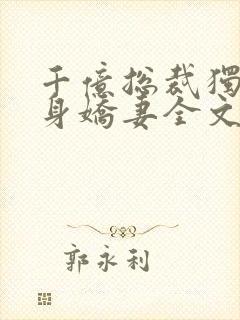 千億總裁獨
身嬌妻全文
郭永利